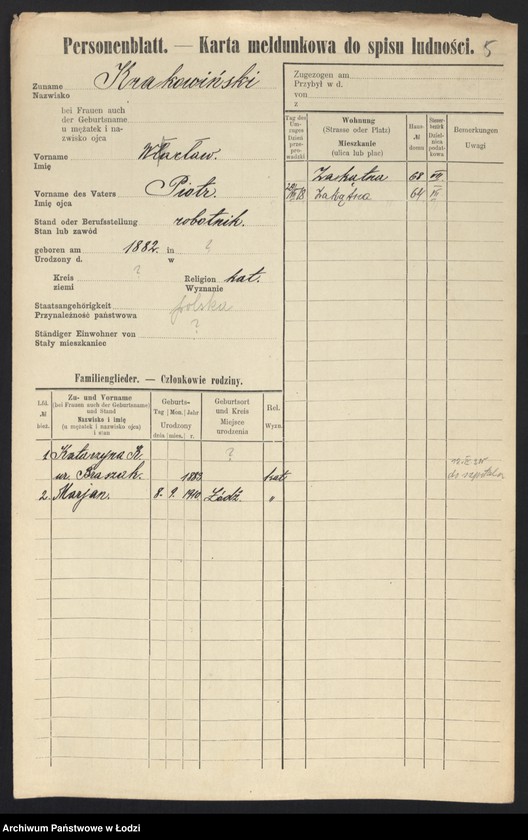 Personenblatt. — Karta meldunkowa do spisu ludności. 5
Zuname Krakowiński
Nazwisko
bei Frauen auch
der Geburtsname
u mężatek i na-
zwisko ojca
Vorname Wacław.
Imię
Vorname des Vaters Piotr.
Imię ojca
Stand oder Berufsstellung robotnik.
Stan lub zawód
geboren am 1882. in ?
Urodzony d. w
Kreis ?
ziemi
Religion kat.
Wyznanie
Staatsangehörigkeit polska
Przynależność państwowa
Ständiger Einwohner von ?
Stały mieszkaniec
Zugezogen am
Przybył w d.
von
z
Tag des Um-zuges Dzień prze-prowadzki
Wohnung
(Strasse oder Platz)
Mieszkanie
(ulica lub plac)
Haus-№ domu
Steuer-bezirk Dzielnica podatkowa
Bemerkungen
Uwagi
Zakątna 68 VII
Zakątna 64 VII
Familienglieder. — Członkowie rodziny.
Lfd. № bież.
Zu- und Vorname
(bei Frauen auch der Geburtsname)
und Stand
Nazwisko i imię
(u mężatek i nazwisko ojca)
i stan
Geburts-
Tag Mon. Jahr
Urodzony
dnia mies. r.
Geburtsort
und Kreis
Miejsce
urodzenia
Rel.
Wyzn.
1 Katarzyna K. ?
ur. 1883 kat
2. Marjan. 8. 9. 1910 Łódź. "
do szpitala
Archiwum Państwowe w Łodzi